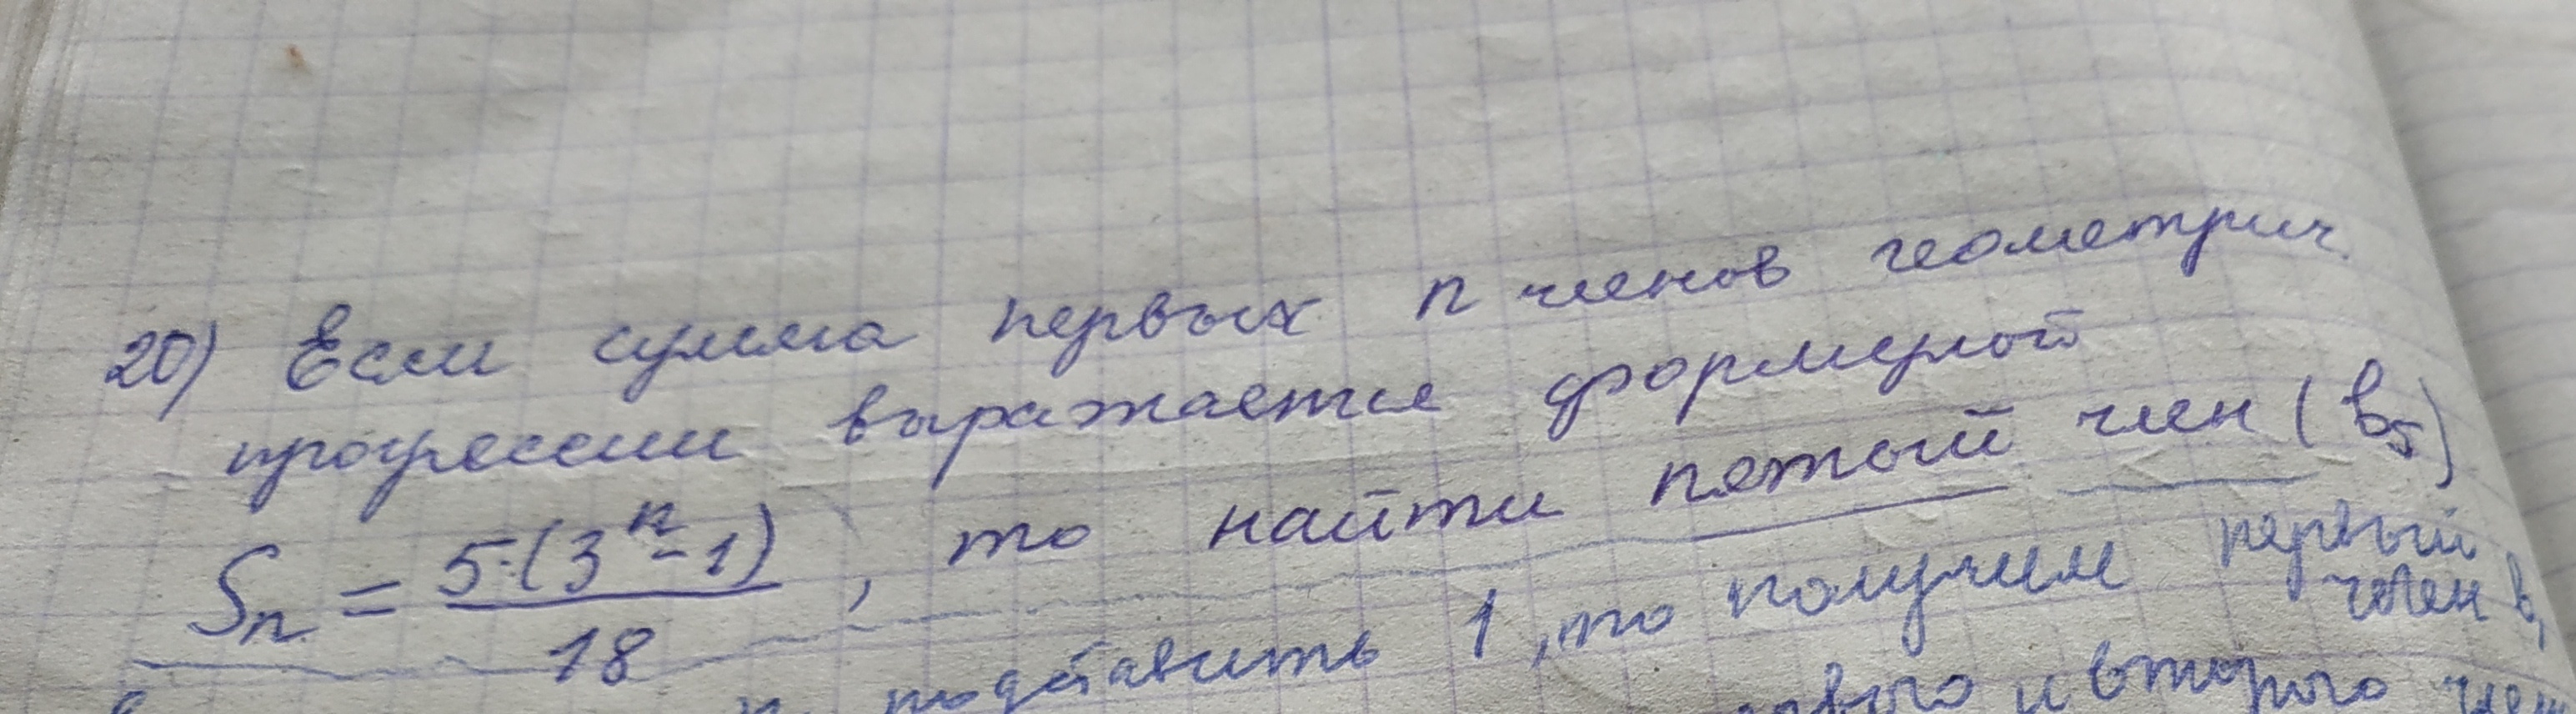 20) Если сумма первых n членов геометрич.
прогрессии выражается формулой
Sn = 5·(3^n - 1) / 18, то найти пятый член (b5)
подставить 1, то получим первый
член b1
и второго